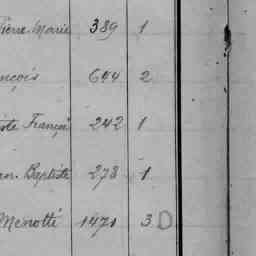 Pierre Marie 389 1
ançois 644 2
iste Franç 242 1
an. Baptiste 273 1
Menotti 1471 3 D